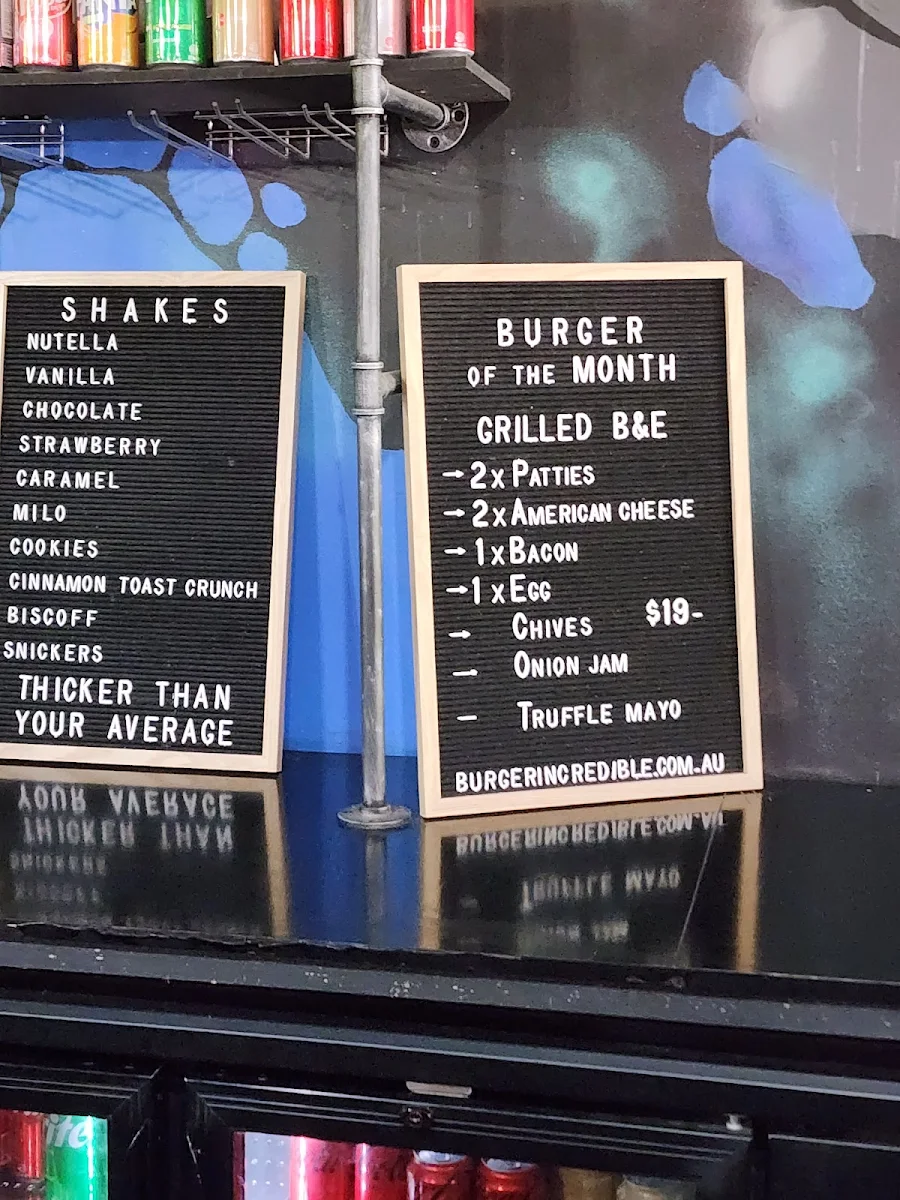 SHAKES
NUTELLA
VANILLA
CHOCOLATE
STRAWBERRY
CARAMEL
MILO
COOKIES
CINNAMON TOAST CRUNCH
BISCOFF
SNICKERS
THICKER THAN
YOUR AVERAGE
BURGER
OF THE MONTH
GRILLED B&E
→ 2x PATTIES
→ 2x AMERICAN CHEESE
→ 1x BACON
→ 1x EGG
→ CHIVES $19-
— ONION JAM
— TRUFFLE MAYO
BURGERINCREDIBLE.COM.AU